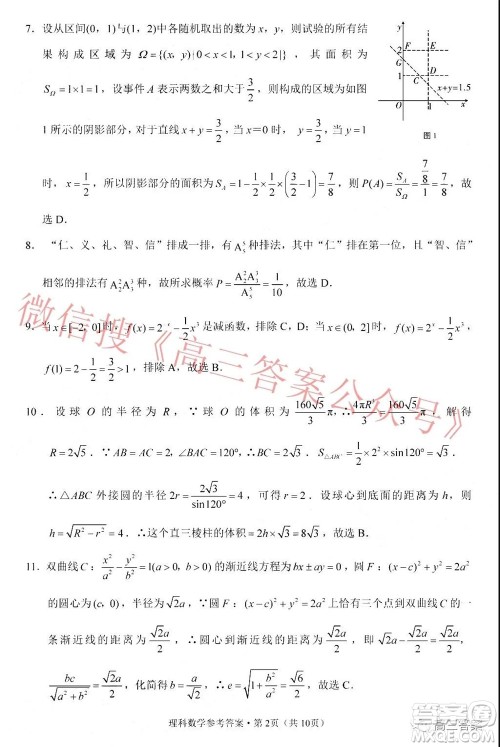 7．设从区间(0，1)与(1，2)中各随机取出的数为 x，y，则试验的所有结
果构成区域为 Ω={(x，y)|0<x<1，1<y<2}，其面积为
S_Ω=1×1=1，设事件 A 表示两数之和大于 3/2，则构成的区域为如图
1 所示的阴影部分，对于直线 x+y=3/2，当 x=0 时，y=3/2，当 y=1
图 1
x+y=1.5
时，x=1/2，所以阴影部分的面积为 S_A=1-1/2×1/2×(3/2-1)=7/8，则 P(A)=S_A/S_Ω=(7/8)/1=7/8，故
选 D．
8．“仁、义、礼、智、信”排成一排，有 A_5^5 种排法，其中“仁”排在第一位，且“智信”
相邻的排法有 A_2^2A_3^3 种，故所求概率 P=A_2^2A_3^3/A_5^5=1/10，故选 D．
9．当 x∈[-2，0]时，f(x)=2^x-1/2x² 是减函数，排除 C，D；当 x∈(0，2]时，f(x)=2^x-1/2x²，
f(1)=2-1/2=3/2>1，排除 A，故选 B．
10．设球 O 的半径为 R，∵球 O 的体积为 160√5/3 π，∴4πR³/3=160√5/3 π，解得
R=2√5．∵AB=AC=AA₁，∠BAC=120°，S_△ABC=1/2×2×2×sin120°=√3．
∴△ABC 外接圆的半径为 2r=2√3/sin120°=4，可得 r=2．设球心到底面的距离为 h，则
h=√(R²-r²)=4．∴这个直三棱柱的体积=2h×√3=8√3，故选 A．
11．双曲线 C：x²/a²-y²/b²=1(a>0，b>0)的渐近线方程为 bx±ay=0，圆 F：(x-c)²+y²=2a²
的圆心为(c，0)，半径为 √2a，∵圆 F：(x-c)²+y²=2a² 上恰有三个点到双曲线 C 的
一条渐近线的距离为 √2a/2，∴圆心到渐近线的距离为 √2a/2，∴
bc/√(a²+b²)=√2a/2，即 b=√2a/2，∴e=√(1+b²/a²)=√6/2，故选 C．
理科数学参考答案·第 2 页（共 10 页）
微信搜《高三答案公众号》
高三答案